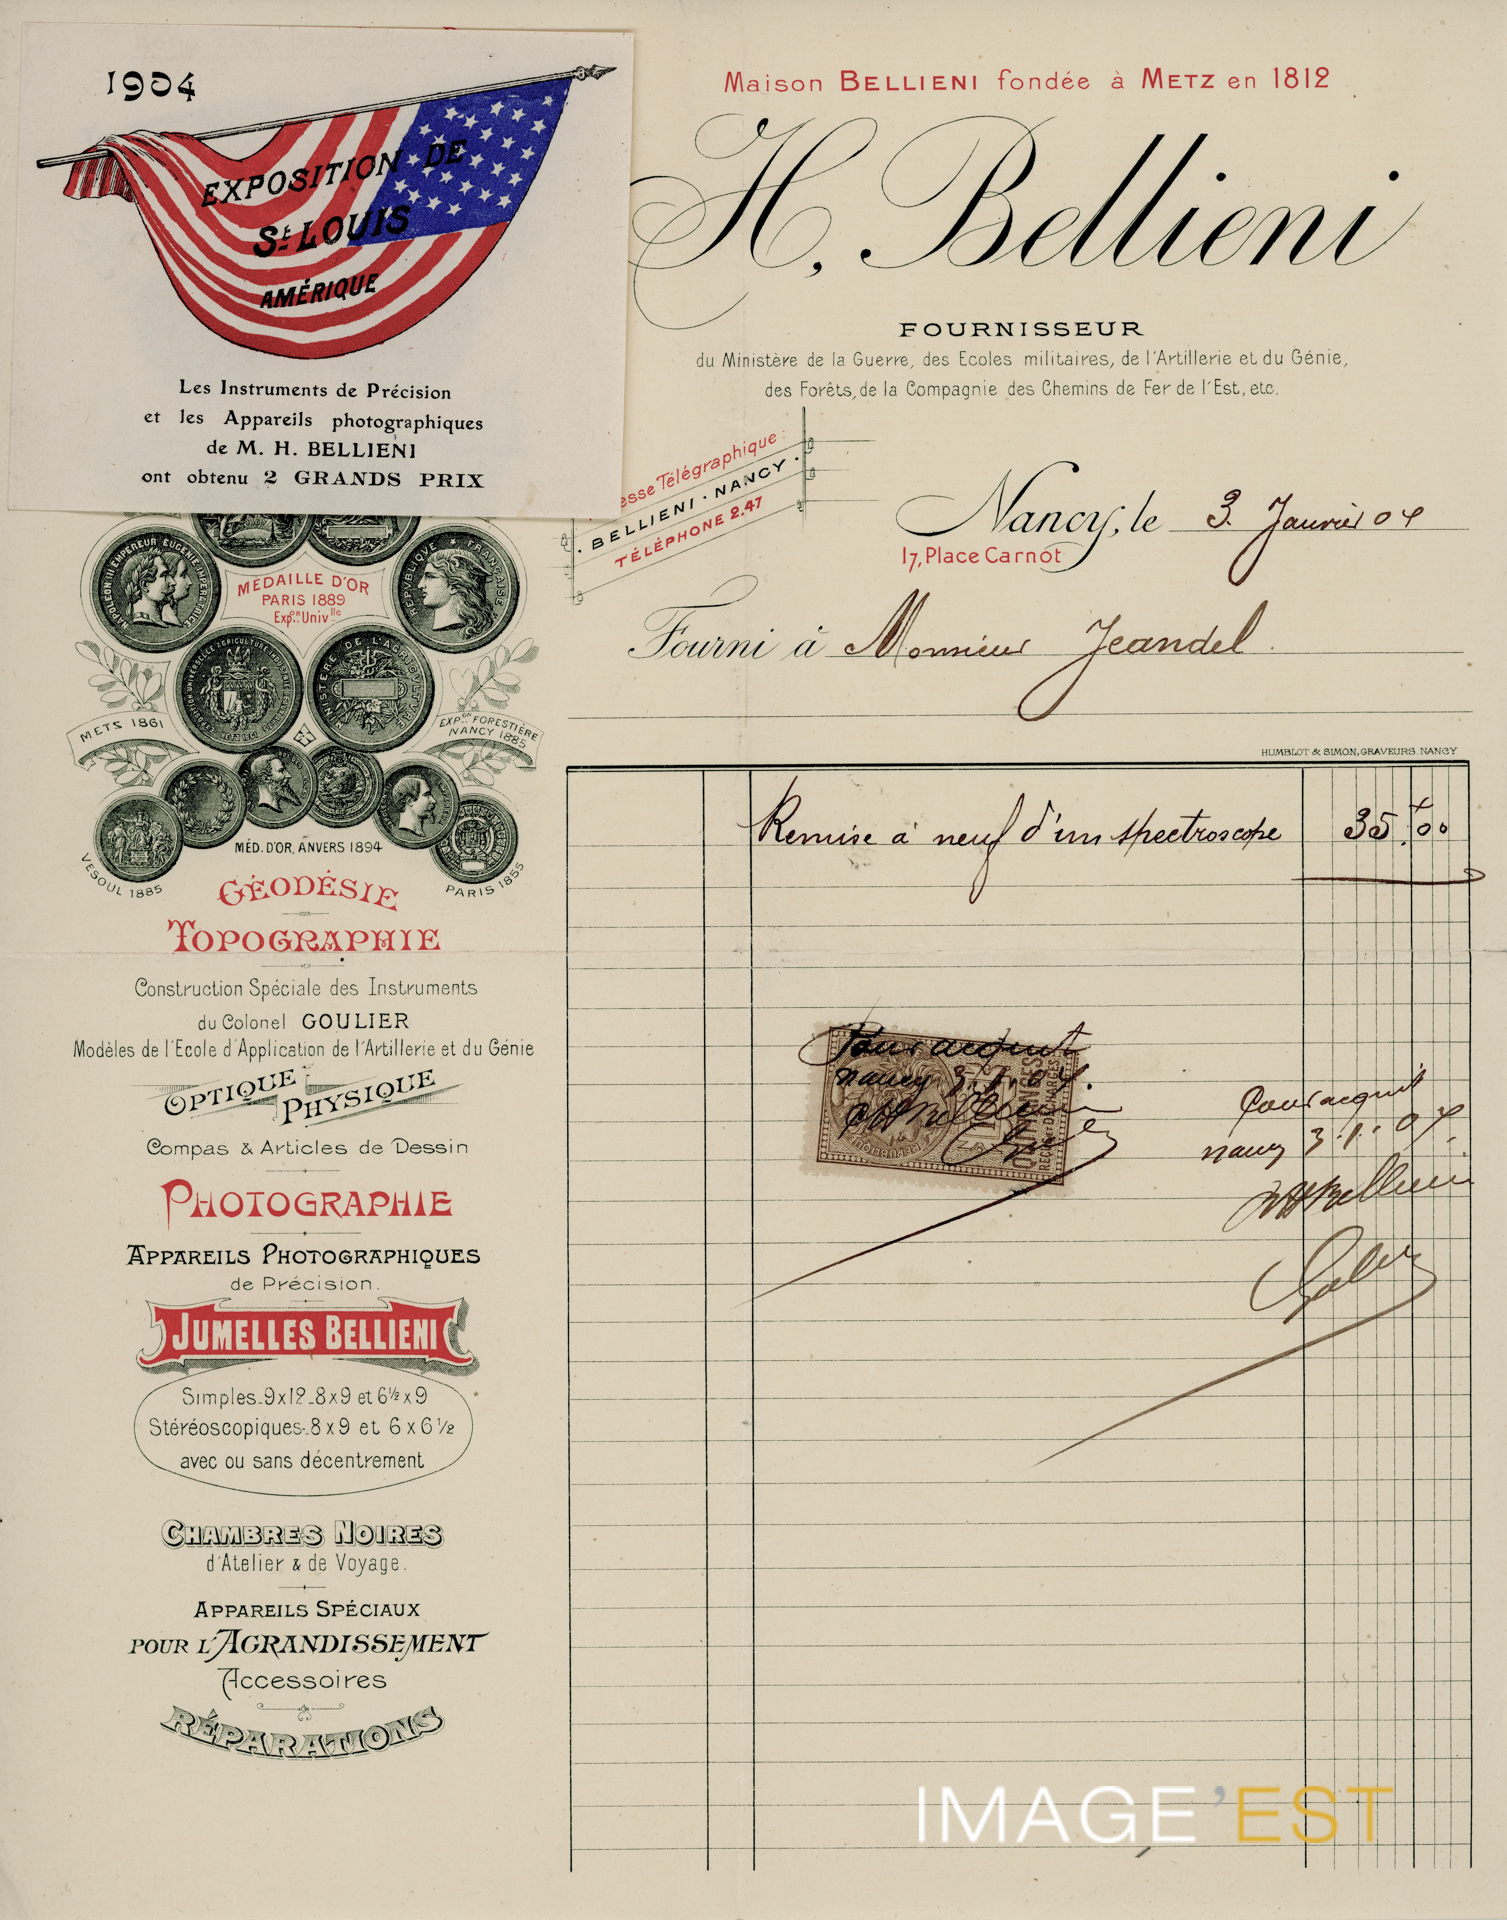 1904
EXPOSITION DE
St LOUIS
AMÉRIQUE
Les Instruments de Précision
et les Appareils photographiques
de M. H. BELLIENI
ont obtenu 2 GRANDS PRIX
Maison BELLIENI fondée à METZ en 1812
H. Bellieni
FOURNISSEUR
du Ministère de la Guerre, des Ecoles militaires, de l'Artillerie et du Génie,
des Forêts, de la Compagnie des Chemins de Fer de l'Est, etc.
esse Télégraphique:
· BELLIENI · NANCY ·
TÉLÉPHONE 2.47
Nancy, le 3. Janvier 04
17, Place Carnot
Fourni à Monsieur Jeandel
HUMBLOT & SIMON, GRAVEURS. NANCY
Remise à neuf d'un spectroscope 35.00
Pour acquit
nancy 3.1.04.
HBellieni
QUITTANCES
Pour acquit
nancy 3.1.04
HBellieni
NAPOLEON III EMPEREUR EUGENIE IMPERATRICE
MÉDAILLE D'OR
PARIS 1889
Expon. Univlle
REPUBLIQUE FRANÇAISE
METZ 1861
EXPon FORESTIÈRE
NANCY 1885
MÉD. D'OR, ANVERS 1894
VESOUL 1885
PARIS 1855
GÉODÉSIE
TOPOGRAPHIE
Construction Spéciale des Instruments
du Colonel GOULIER
Modèles de l'Ecole d'Application de l'Artillerie et du Génie
OPTIQUE
PHYSIQUE
Compas & Articles de Dessin
PHOTOGRAPHIE
APPAREILS PHOTOGRAPHIQUES
de Précision.
JUMELLES BELLIENI
Simples_9x12_8x9 et 6½x9
Stéréoscopiques_8x9 et 6x6½
avec ou sans décentrement
CHAMBRES NOIRES
d'Atelier & de Voyage.
APPAREILS SPÉCIAUX
POUR L'AGRANDISSEMENT
Accessoires
RÉPARATIONS
IMAGE'EST